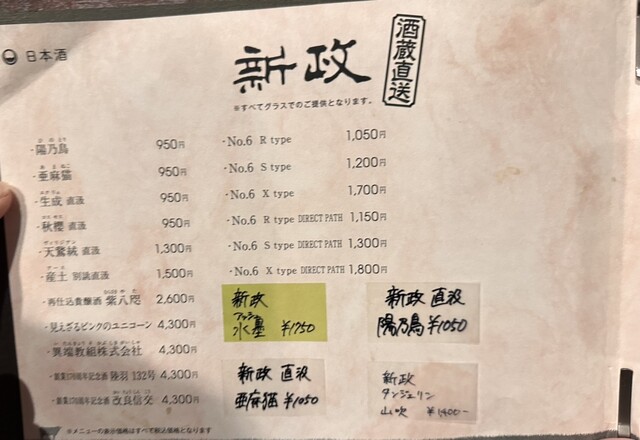 日本酒
新政
酒蔵直送
※すべてグラスでのご提供となります。
・陽乃鳥 950円
・亜麻猫 950円
・生成 直汲 950円
・秋櫻 直汲 950円
・天鵞絨 直汲 1,300円
・産土 別誂直汲 1,500円
・再仕込貴醸酒 紫八咫 2,600円
・見えざるピンクのユニコーン 4,300円
・異端教組株式会社 4,300円
・創業170周年記念酒 陸羽 132号 4,300円
・創業170周年記念酒 改良信交 4,300円
※メニューの表示価格はすべて税込価格となります
・No.6 R type 1,050円
・No.6 S type 1,200円
・No.6 X type 1,700円
・No.6 R type DIRECT PATH 1,150円
・No.6 S type DIRECT PATH 1,300円
・No.6 X type DIRECT PATH 1,800円
新政
アッシュ
水墨 ¥1750
新政 直汲
陽乃鳥 ¥1050
新政 直汲
亜麻猫 ¥1050
新政
タンジェリン
山吹 ¥1400-